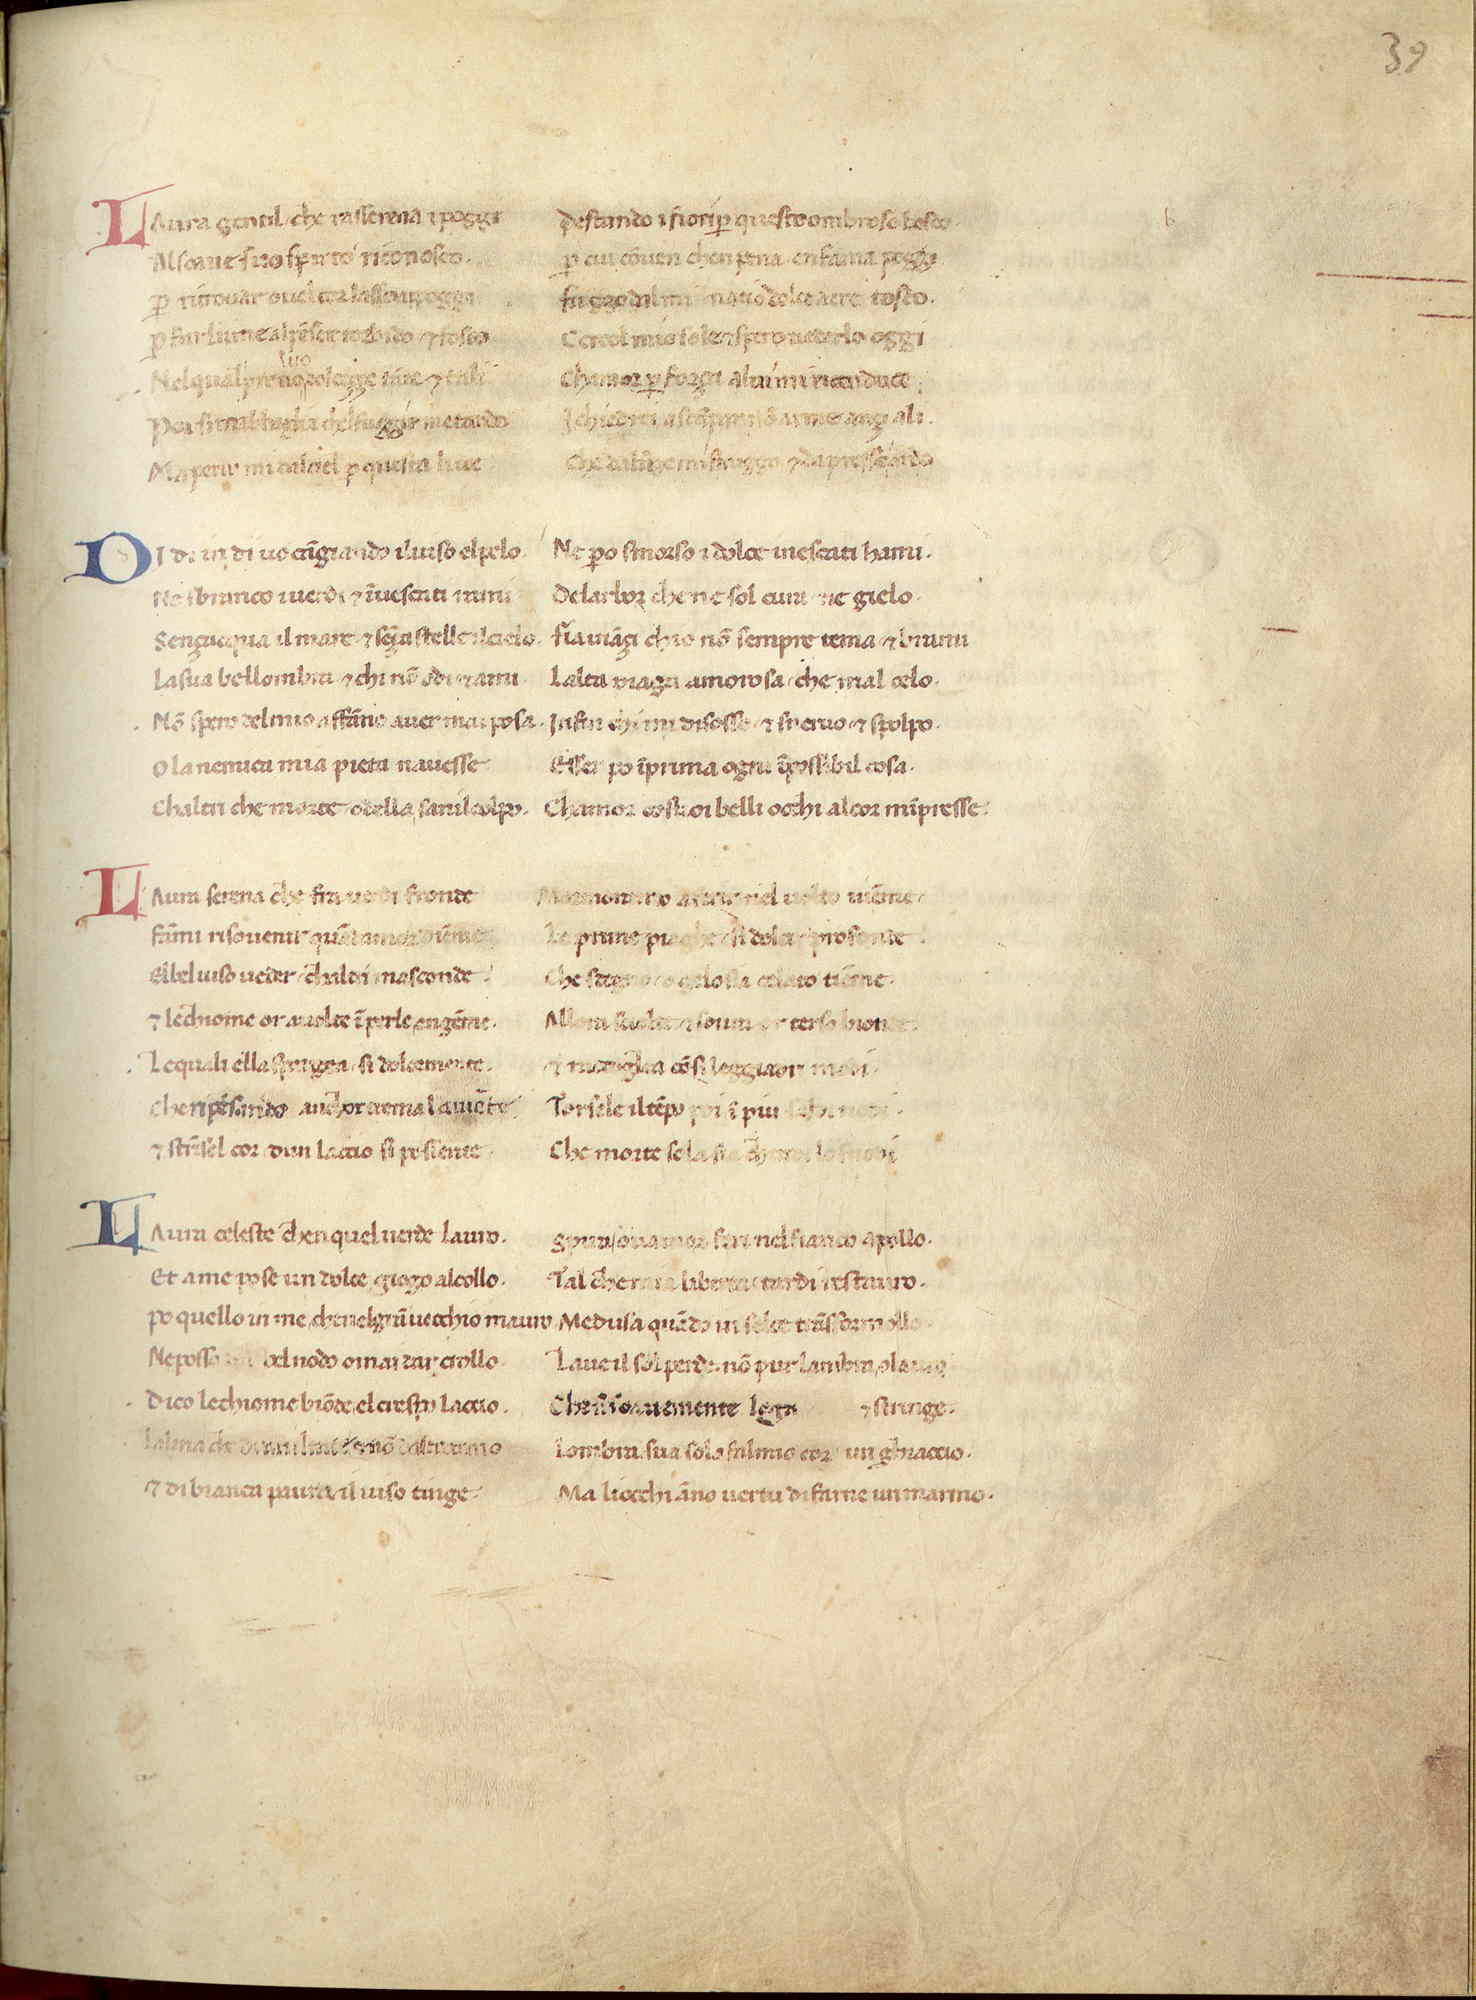 39
LAura gentil che rasserena i poggi Destando i fior p questo ombroso bosco.
Al soave suo spirto riconosco. p cui cōven chen pena en fama poggi
p ritrovar ove l cor lasso appoggi fuggo dal mi natio dolce aere tosco.
p far lume al pēser torbido ⁊ fosco Cerco l mio sole ⁊ spero vederlo oggi
suo
Nel qual provo dolcezze tate ⁊ tali Chamor p forza a lui mi riconduce
Poi si mabbaglia chel fuggir me tardo I chiedrei a scāpar nō arme anzi ali.
Ma perir mi da l ciel p questa luce Che da lūge mi struggo ⁊ da presso ardo
DI di in di vo cāgiando il viso el pelo. Ne po smorso i dolce inescati hami.
Ne sbranco i verdi ⁊ īvescati rami Delarbor che ne sol cura ne gielo.
Senzacqua il mare ⁊ sēça stelle il cielo. fia ināzi chio nō sempre tema ⁊ brami
La sua bellombra ⁊ chi nō odi ⁊ ami Lalta piaga amorosa che mal celo.
Nō spero del mio affāno aver mai posa. Infin chi mi disosso ⁊ snervo ⁊ spolpo.
O la nemica mia pieta navesse Esser po īprima ogni īpossibil cosa.
Chaltri che morte od ella sani l colpo. Chamor co suoi belli occhi al cor mīpresse.
LAura serena che fra verdi fronde Mormorando a ferir nel volto viēme.
fāmi risovenir quādamor diēme Le prime piaghe si dolci profonde
El bel viso veder chaltri masconde Che sdegno o gelosia celato tiēme.
⁊ le chiome or avolte ī perle en gēme. Allora sciolte ⁊ sovra or terso bionde.
Le quali ella spargea si dolcemente. ⁊ raccoglea cō si leggiadri modi.
Che ripēsando anchor trema la mēte. Torsele il tēpo poi ī piu saldi nodi.
⁊ strīsel cor dun laccio si possente Che morte sola fia che
LAura celeste chen quel verde lauro. Spira ovamor feri nel fianco apollo.
Et a me pose un dolce giogo al collo. Tal che mia liberta tardi restauro.
po quello in me che nel grā vecchio mauro Medusa quādo in selce trāsformollo.
Ne posso dal bel nodo omai dar crollo Lave il sol perde nō pur lambra o lauro
Dico le chiome biōde el crespo laccio. Che si soavemente lega ⁊ stringe.
Lombra sua sola fa l mio cor un ghiaccio.
⁊ di bianca paura il viso tinge Ma li occhi āno vertu di farne un marmo.